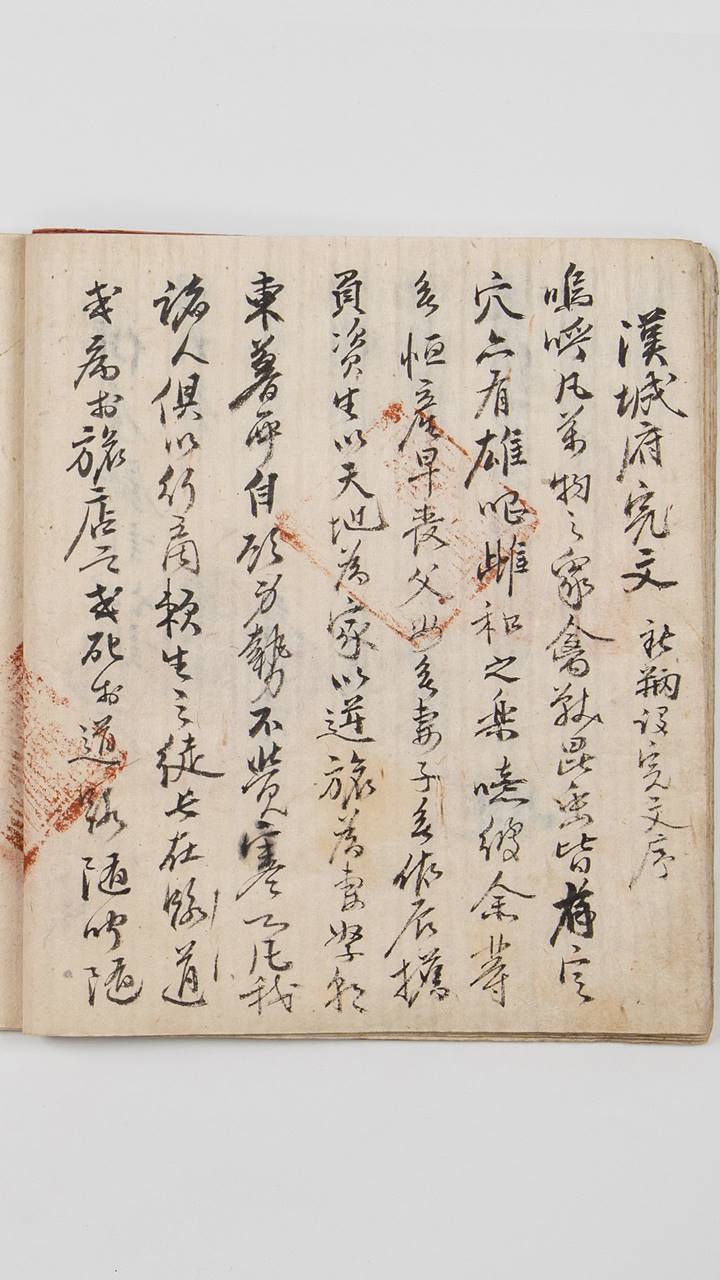 漢城府完文 新刱設完文序
嗚呼凡萬物之衆禽獸昆虫皆有定
穴亦有雄唱雌和之樂噫彼余等
無恒産早喪父母無妻子無依居携
負資生以天地爲家以逆旅爲妻孥朝
東暮西自顧身勢不覺寒心凡我
諸人俱以行商賴生之徒長在路道
或病於旅店之或死於道路随時随